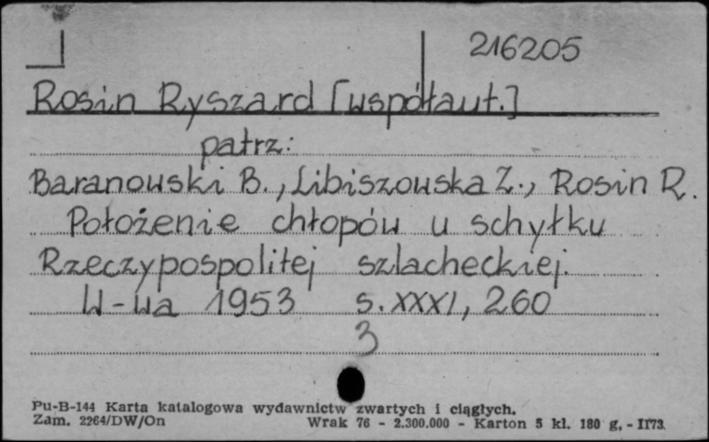 216205
Rosin Ryszard [współaut.]
patrz:
Baranowski B., Libiszowska Z., Rosin R.
Położenie chłopów u schyłku
Rzeczypospolitej szlacheckiej.
W-wa 1953 s. XXXI, 260
3
Pu-B-144 Karta katalogowa wydawnictw zwartych i ciągłych.
Zam. 2264/DW/On Wrak 76 - 2.300.000 - Karton 5 kl. 180 g. - II73.